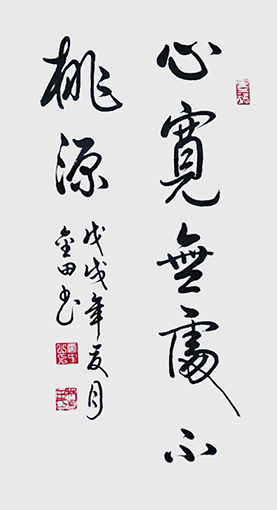 心寬無處不
桃源
戊戌年夏月
金田书